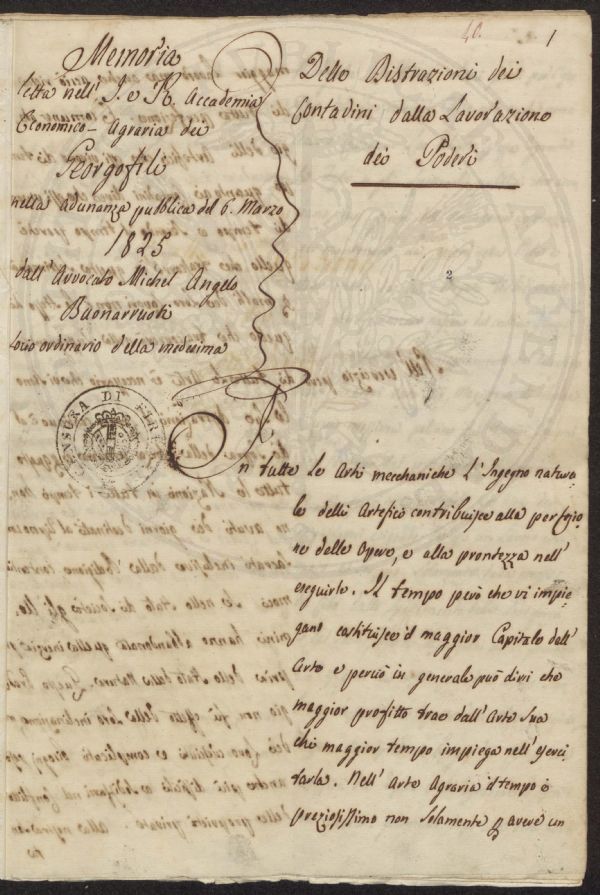 40.
1
Memoria
letta nell' I. e R. Accademia
Economico-Agraria dei
Georgofili
nella Adunanza pubblica del 6. Marzo
1825
dall' Avvocato Michel Angelo
Buonarruoti
Socio ordinario della medesima
Delle Distrazioni dei
Contadini dalla Lavorazione
dei Poderi
2
CENSURA DI
In tutte le Arti mecchaniche l'Ingegno natura-
le delli Artefici contribuisce alla perfezio-
ne delle Opere, e alla prontezza nell'
eseguirle. Il tempo però che vi impie-
gano costituisce il maggior Capitale dell'
Arte e perciò in generale può dirsi che
maggior profitto trae dall'Arte Sua
chi maggior tempo impiega nell'eserci-
tarla. Nell'Arte Agraria il tempo è
preziosissimo non solamente p avere un